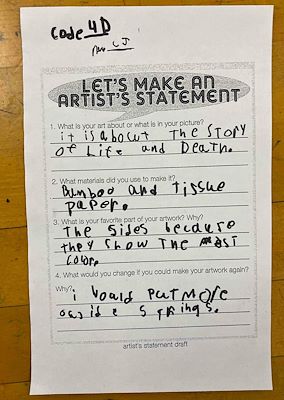 Code 4D
LET'S MAKE AN
ARTIST'S STATEMENT
1. What is your art about or what is in your picture?
it is about The Story
of Life and Death.
2. What materials did you use to make it?
Bamboo and tissue
paper.
3. What is your favorite part of your artwork? Why?
The Sides because
they Show The most
Color.
4. What would you change if you could make your artwork again?
Why?
i would Put More
artist's statement draft